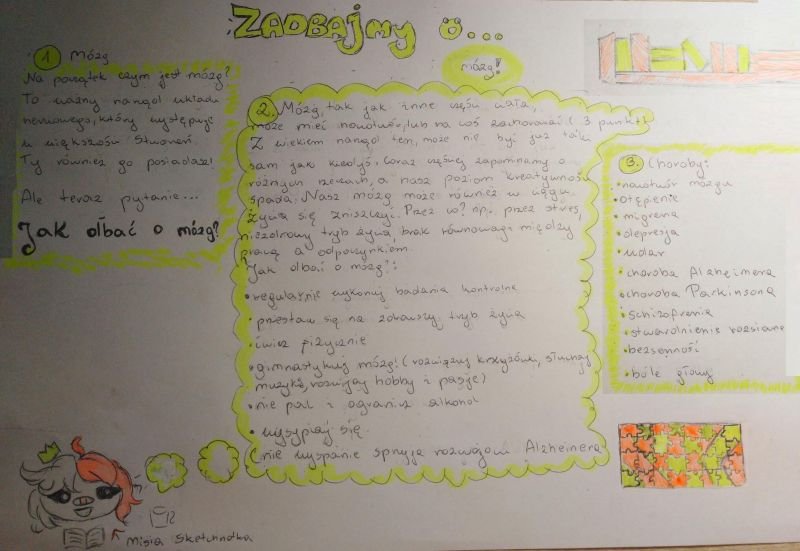 ZADBAJMY O...
mózg!
1 Mózg
Na początek czym jest mózg?
To ważny narząd układu
nerwowego, który występuje
u większości stworzeń.
Ty również go posiadasz!
Ale teraz pytanie...
Jak dbać o mózg?
2. Mózg, tak jak inne części ciała,
może mieć nowotwór, lub na coś zachorować (3 punkt)
Z wiekiem narząd ten, może nie być już taki
sam jak kiedyś. Coraz częściej zapominamy o
różnych rzeczach, a nasz poziom kreatywności
spada. Nasz mózg może również w ciągu
życia się zniszczyć. Przez co? np. przez stres,
niezdrowy tryb życia, brak równowagi między
pracą a odpoczynkiem.
Jak dbać o mózg?:
• regularnie wykonuj badania kontrolne
• przestaw się na zdrowszy tryb życia
• ćwicz fizycznie
• gimnastykuj mózg! (rozwiązuj krzyżówki, słuchaj
muzyki, rozwijaj hobby i pasje)
• nie pal i ogranicz alkohol
• wysypiaj się
(nie wyspanie sprzyja rozwojowi Alzheimera
3. Choroby:
• nowotwór mózgu
• otępienie
• migrena
• depresja
• udar
• choroba Alzheimera
• choroba Parkinsona
• schizofrenia
• stwardnienie rozsiane
• bezsenność
• bóle głowy
Misia Sketchnotka